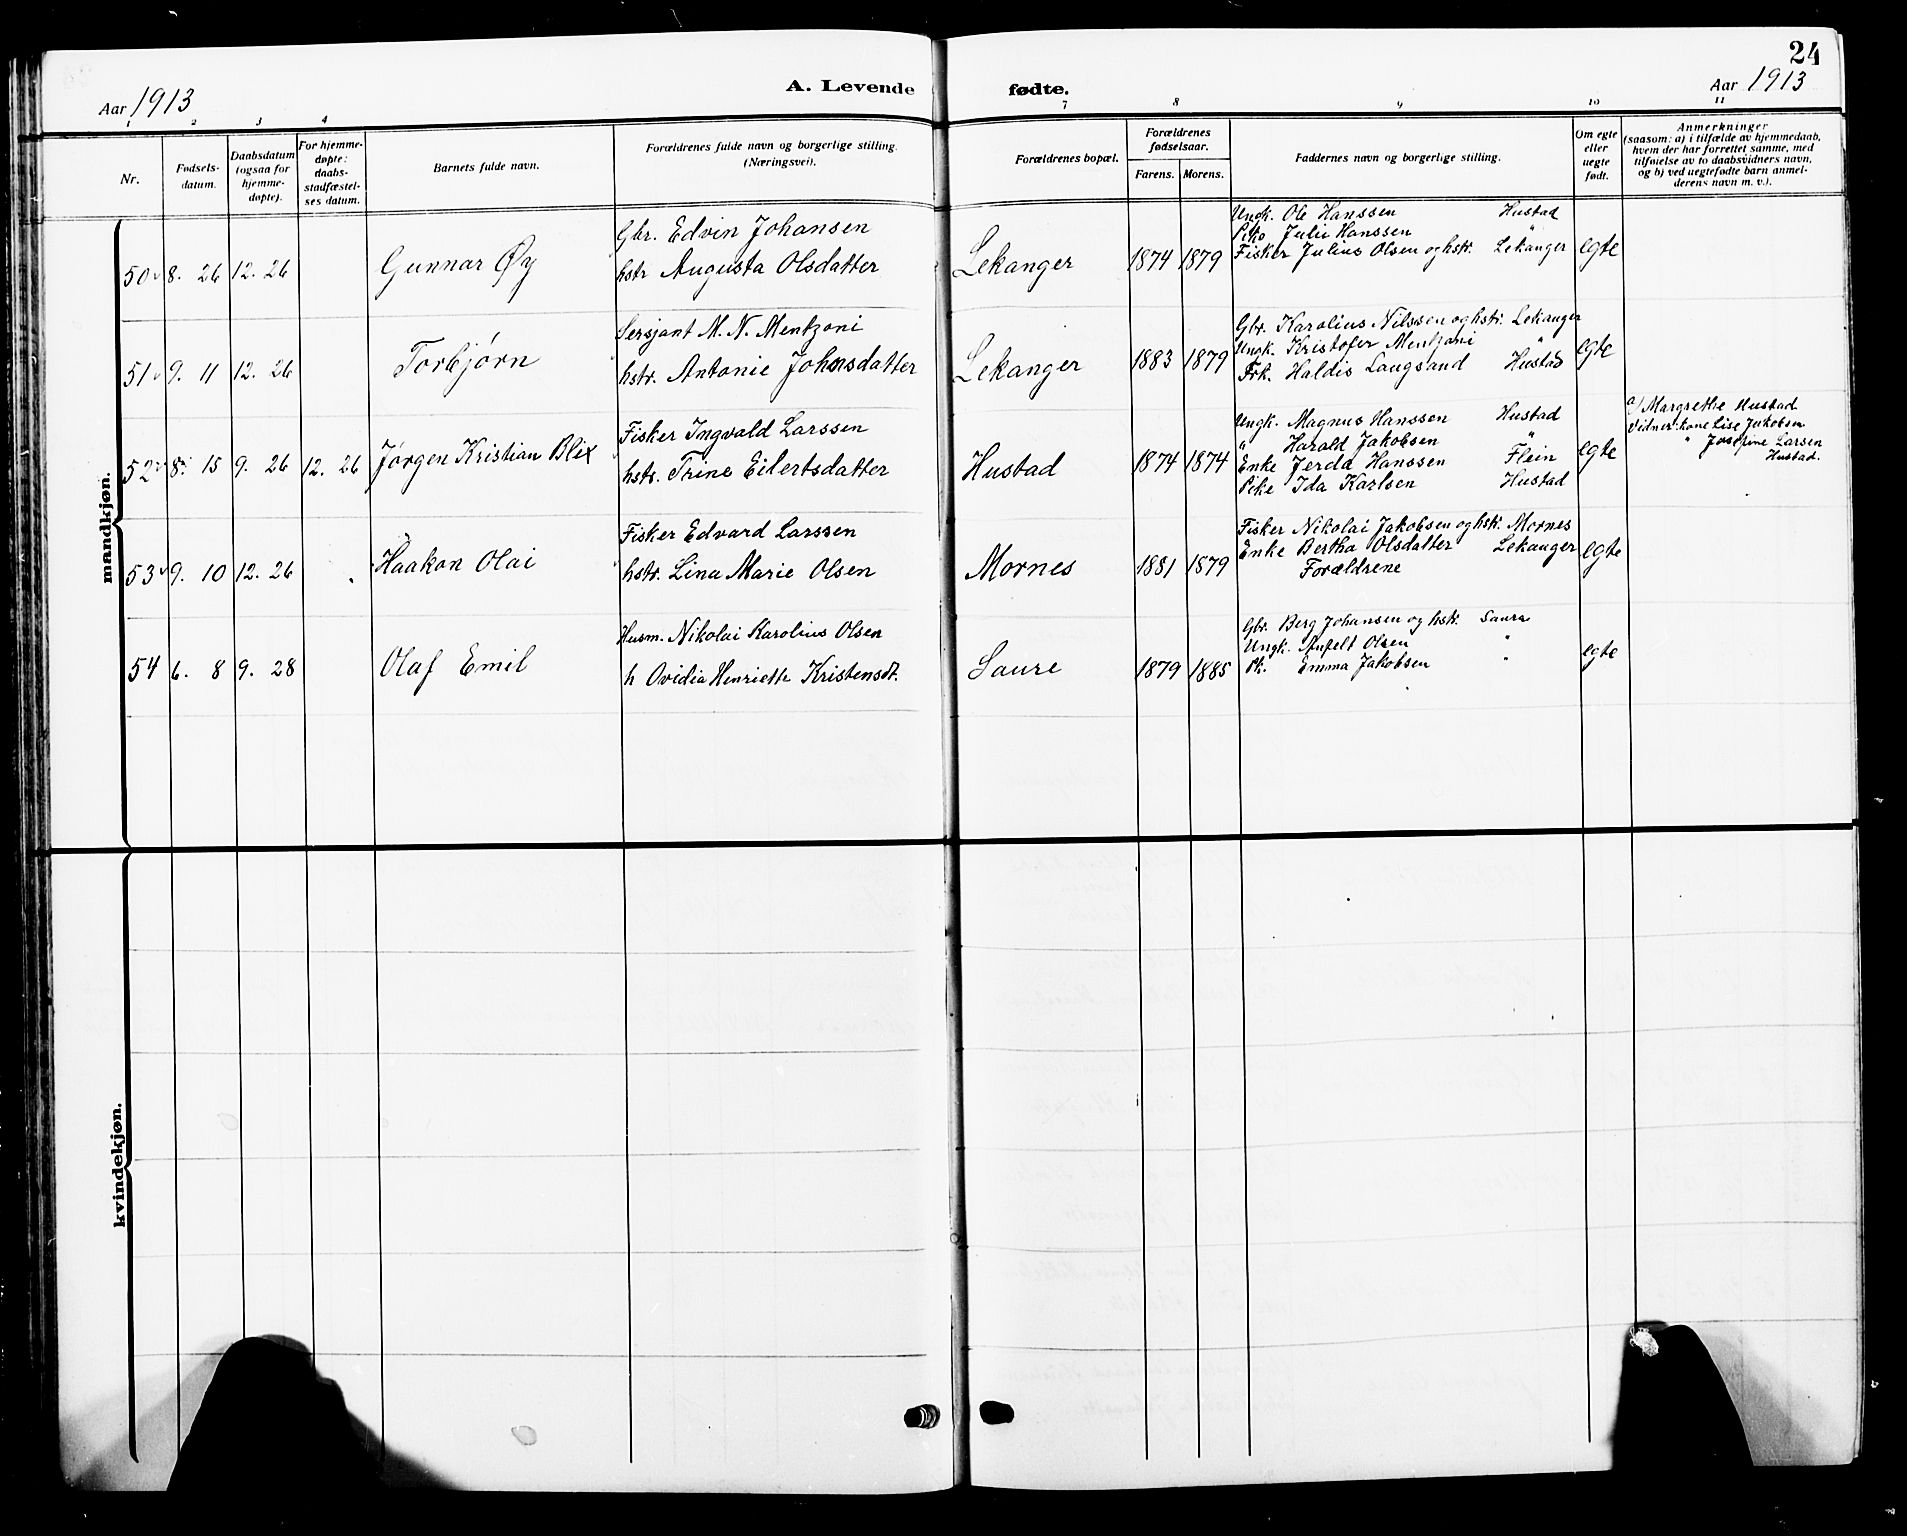 24
Aar 1913
A. Levende fødte.
Aar 1913
1 2 3 4 7 8 9 10 11
Nr.
Fødsels-
datum.
Daabsdatum
(ogsaa for
hjemme-
døpte).
For hjemme-
døpte:
daabs-
stadfæstel-
ses datum.
Barnets fulde navn.
Forældrenes fulde navn og borgerlige stilling.
(Næringsvei).
Forældrenes bopæl.
Forældrenes
fødselsaar.
Farens. Morens.
Faddernes navn og borgerlige stilling.
Om egte
eller
uegte
født.
Anmerkninger
(saasom: a) i tilfælde av hjemmedaab,
hvem der har forrettet samme, med
tilføielse av to daabsvidners navn,
og b) ved uegtefødte barn anmel-
derens navn m. v.).
mandkjøn.
50 8. 26 12. 26 Gunnar Øy
Gbr. Edvin Johansen
hstr Augusta Olsdatter
Lekanger 1874 1879
Ungk. Ole Hanssen Hustad
Pike Julie Hanssen "
Fisker Julius Olsen og hstr. Lekanger
egte
51 9. 11 12. 26 Torbjørn
Sersjant M. N. Mentzoni
hstr. Antonie Johnsdatter
Lekanger 1883 1879
Gbr. Karolius Nilssen og hstr. Lekanger
Ungk. Kristofer Mentzoni "
Frk. Haldis Langsand Hustad
egte
52 8. 15 9. 26 12. 26 Jørgen Kristian Blix
Fisker Ingvald Larssen
hstr. Trine Eilertsdatter
Hustad 1874 1874
Ungk. Magnus Hanssen Hustad
" Harald Jakobsen "
Enke Jerda Hanssen Flein
Pike Ida Karlsen Hustad
egte
a/ Margrethe Hustad
Vidner: kone Lise Jakobsen
" Josefine Larsen
Hustad.
53 9. 10 12. 26 Haakon Olai
Fisker Edvard Larssen
hstr. Lina Marie Olsen
Mornes 1881 1879
Fisker Nikolai Jakobsen og hsk. Mornes
Enke Bertha Olsdatter Lekanger
Forældrene
egte
54 6. 8 9. 28 Olaf Emil
Husm. Nikolai Karolius Olsen
h Ovidia Henriette Kristensdt.
Saure 1879 1885
Gbr. Berg Johansen og hsk. Saura
Ungk. Anfelt Olsen "
Pk. Emma Jakobsen "
egte
kvindekjøn.